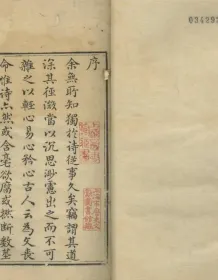 序
余無所知獨於詩従事久矣竊謂其道
深其徑微當以沉思渺慮出之而不可
雜之以輕心易心矜心古人云為文喪
命惟詩亦然或含毫欲腐或撚斷數莖